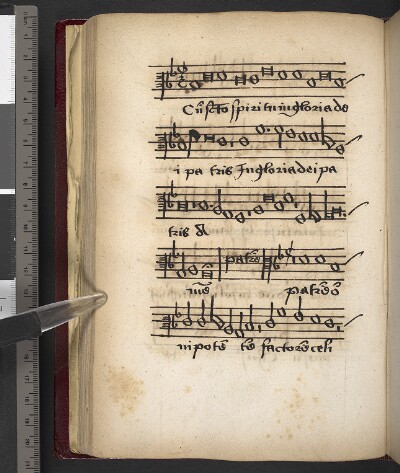 Cu scto spiritu in gloria de
i pa tris In gloria dei pa
tris A
patre
me patre o
nipote te factore celi